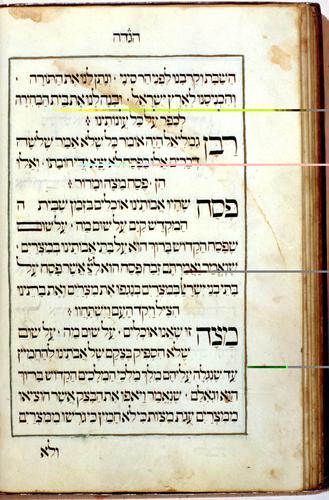 הגדה
השבת וקרבנו לפני הר סיני · ונתן לנו את התורה
והכניסנו לארץ ישראל · ובנה לנו את בית הבחירה
לכפר על כל עונותינו ׃
רבן גמליאל היה אומר כל שלא אמר שלשה
דברים אלו בפסח לא יצא ידי חובתו · ואלו
הן · פסח מצה ומרור ׃
פסח שהיו אבותינו אוכלים בזמן שבית ה
המקדש קיים על שום מה · על שום
שפסח הקדוש ברוך הוא על בתי אבותינו במצרים ·
שנאמר ואמרתם זבח פסח הוא לי״י אשר פסח על
בתי בני ישראל במצרים בנגפו את מצרים ואת בתינו
הציל ויקד העם וישתחוו ׃
מצה זו שאנו אוכלים · על שום מה · על שום
שלא הספיק בצקם של אבותינו להחמיץ
עד שנגלה עליהם מלך מלכי המלכים הקדוש ברוך
הוא וגאלם · שנאמר ויאפו את הבצק אשר הוציאו
ממצרים עגת מצות כי לא חמץ כי גרשו ממצרים
ולא